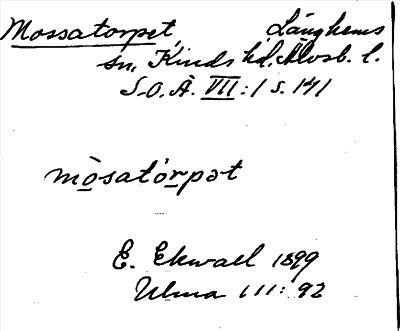 Mossatorpet, Länghems
sn, Kinds hd. Älvsb. l.
S.O.Ä. VII:1 s. 141
mòsatórpət
E. Ekwall 1899
Ulma 111: 92